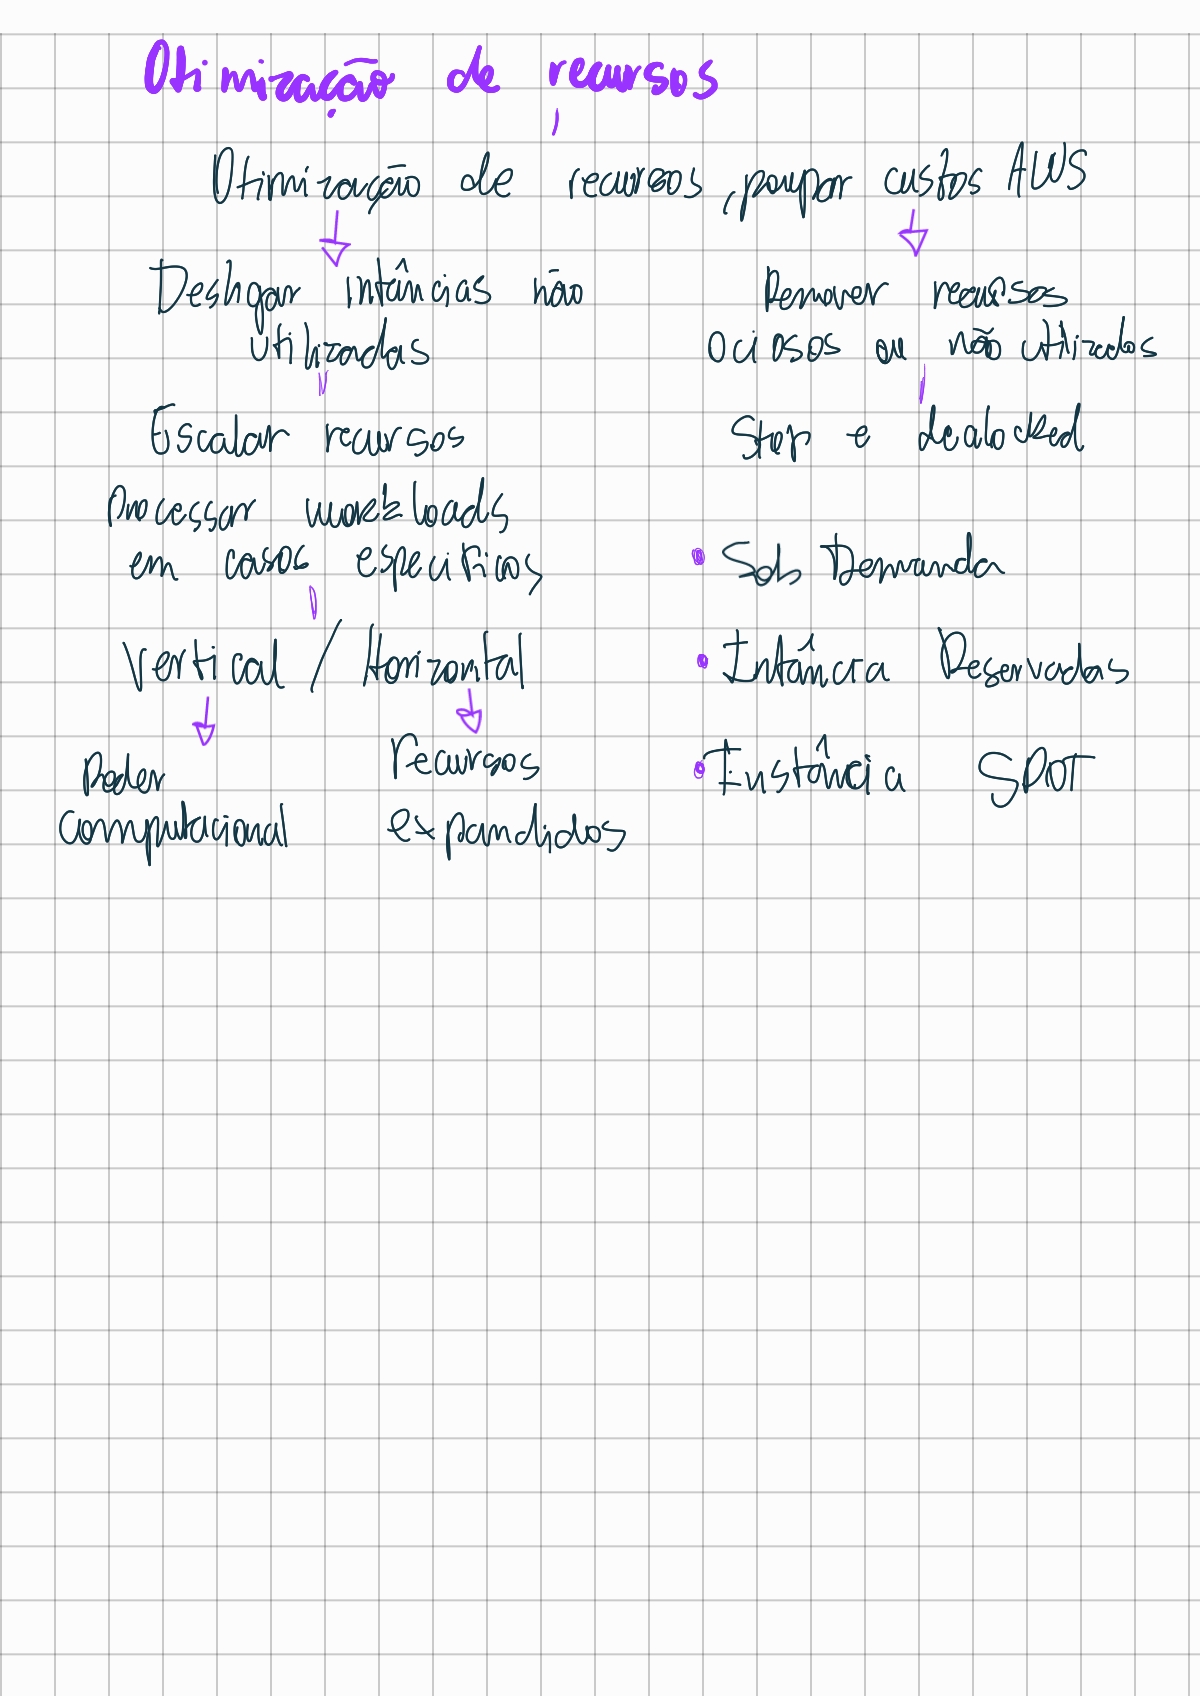 Otimização de recursos
Otimização de recursos, poupar custos AWS
Desligar intâncias não
utilizadas
Escalar recursos
Processar workloads
em casos específicos
Vertical / Horizontal
Poder
computacional
recursos
expandidos
Remover recursos
ociosos ou não utilizados
Stop e dealocked
• Sob Demanda
• Intância Reservadas
• Instância SPOT